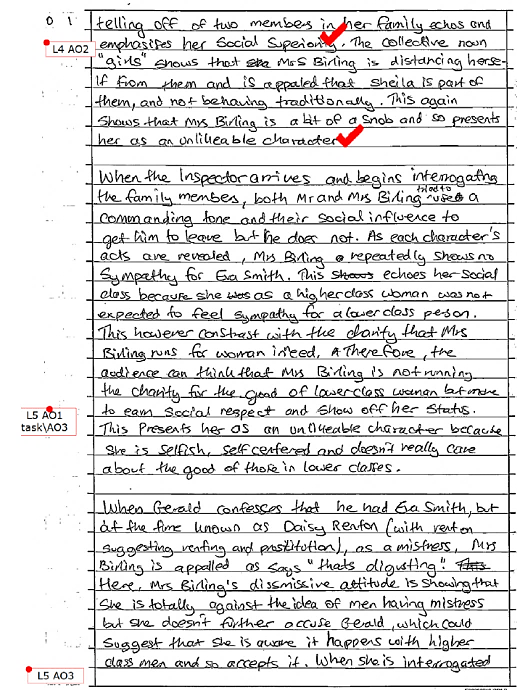 0 1
telling off of two members in her family echos and
L4 AO2
emphasises her Social Superiority. The collective noun
"girls" shows that she Mrs Birling is distancing herse-
lf from them and is appaled that Sheila is part of
them, and not behaving traditionally. This again
shows that Mrs Birling is a bit of a snob and so presents
her as an unlikeable character
When the Inspector arrives and begins interrogating
the family members, both Mr and Mrs Birling tried to use a
commanding tone and their social influence to
get him to leave but he does not. As each character's
acts are revealed, Mrs Birling repeatedly shows no
Sympathy for Eva Smith. This shows echoes her social
class because she was as a higher class woman was not
expected to feel sympathy for a lower class person.
This however constrast with the charity that Mrs
Birling runs for woman in need. Therefore, the
audience can think that Mrs Birling is not running
the charity for the good of lower class woman but more
L5 AO1
task\AO3
to earn Social respect and show off her status.
This presents her as an unlikeable character because
she is selfish, self centered and doesn't really care
about the good of those in lower classes.
When Gerald confesses that he had Eva Smith, but
at the time known as Daisy Renton (with renton
suggesting renting and prostitution), as a mistress, Mrs
Birling is appalled as says "thats digusting!" This
Here, Mrs Birling's dissmissive attitude is showing that
she is totally against the idea of men having mistress
but she doesn't further accuse Gerald, which could
suggest that she is aware it happens with higher
class men and so accepts it. When she is interrogated
L5 AO3